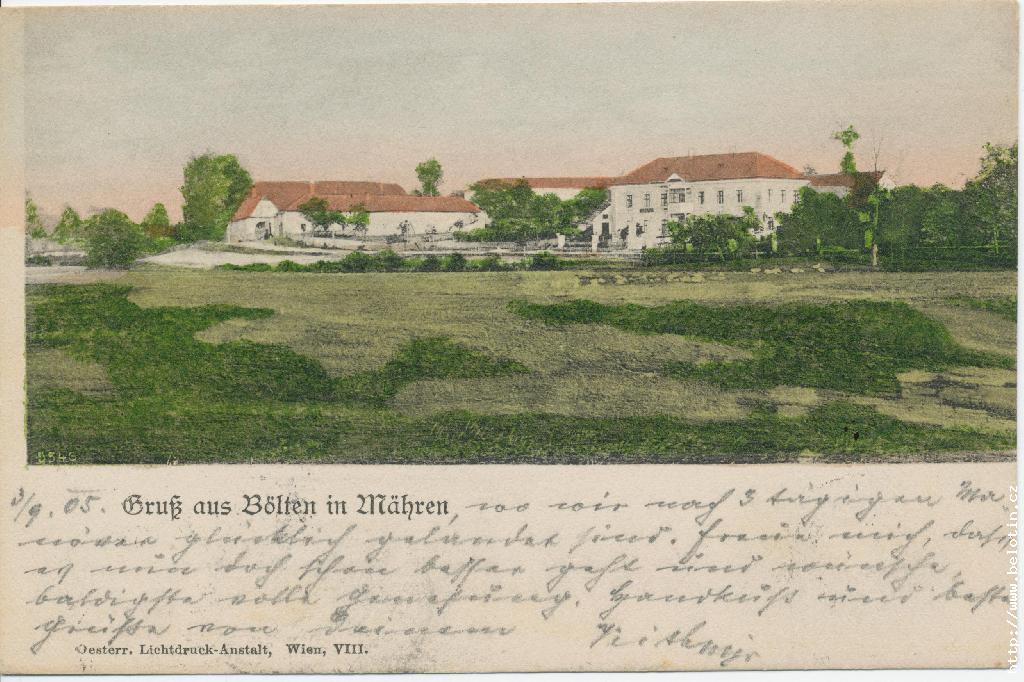 5549
3/9. 05. Gruß aus Bölten in Mähren, wo wir nach 3 tägigen Ma
növer glücklich gelandet sind. Freue mich, dass
es nun doch schon besser geht und wünsche
baldigste volle Genesung. Handkuß und beste
Grüße von Deinem
Oesterr. Lichtdruck-Anstalt, Wien, VIII.
http://www.belotin.cz